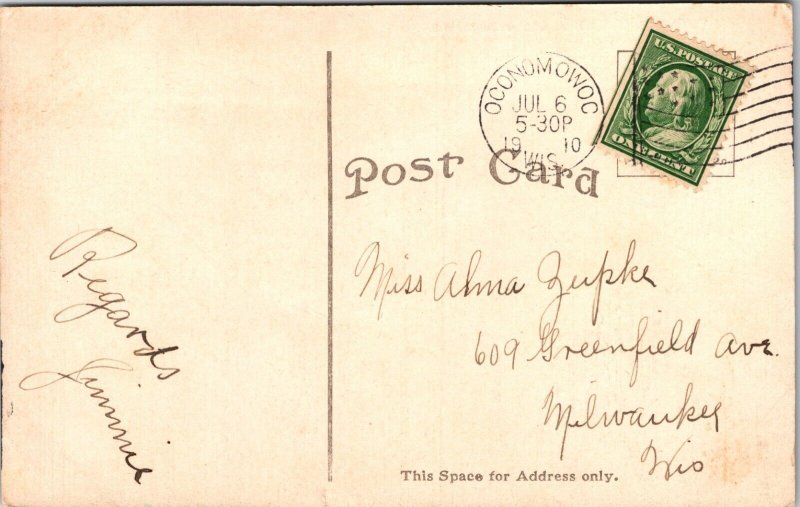 OCONOMOWOC
JUL 6
5-30P
19 10
WIS.
U.S. POSTAGE
ONE CENT
Post Card
Regards
Jimmie
Miss Alma Zupke
609 Greenfield Ave.
Milwaukey
Wis
This Space for Address only.